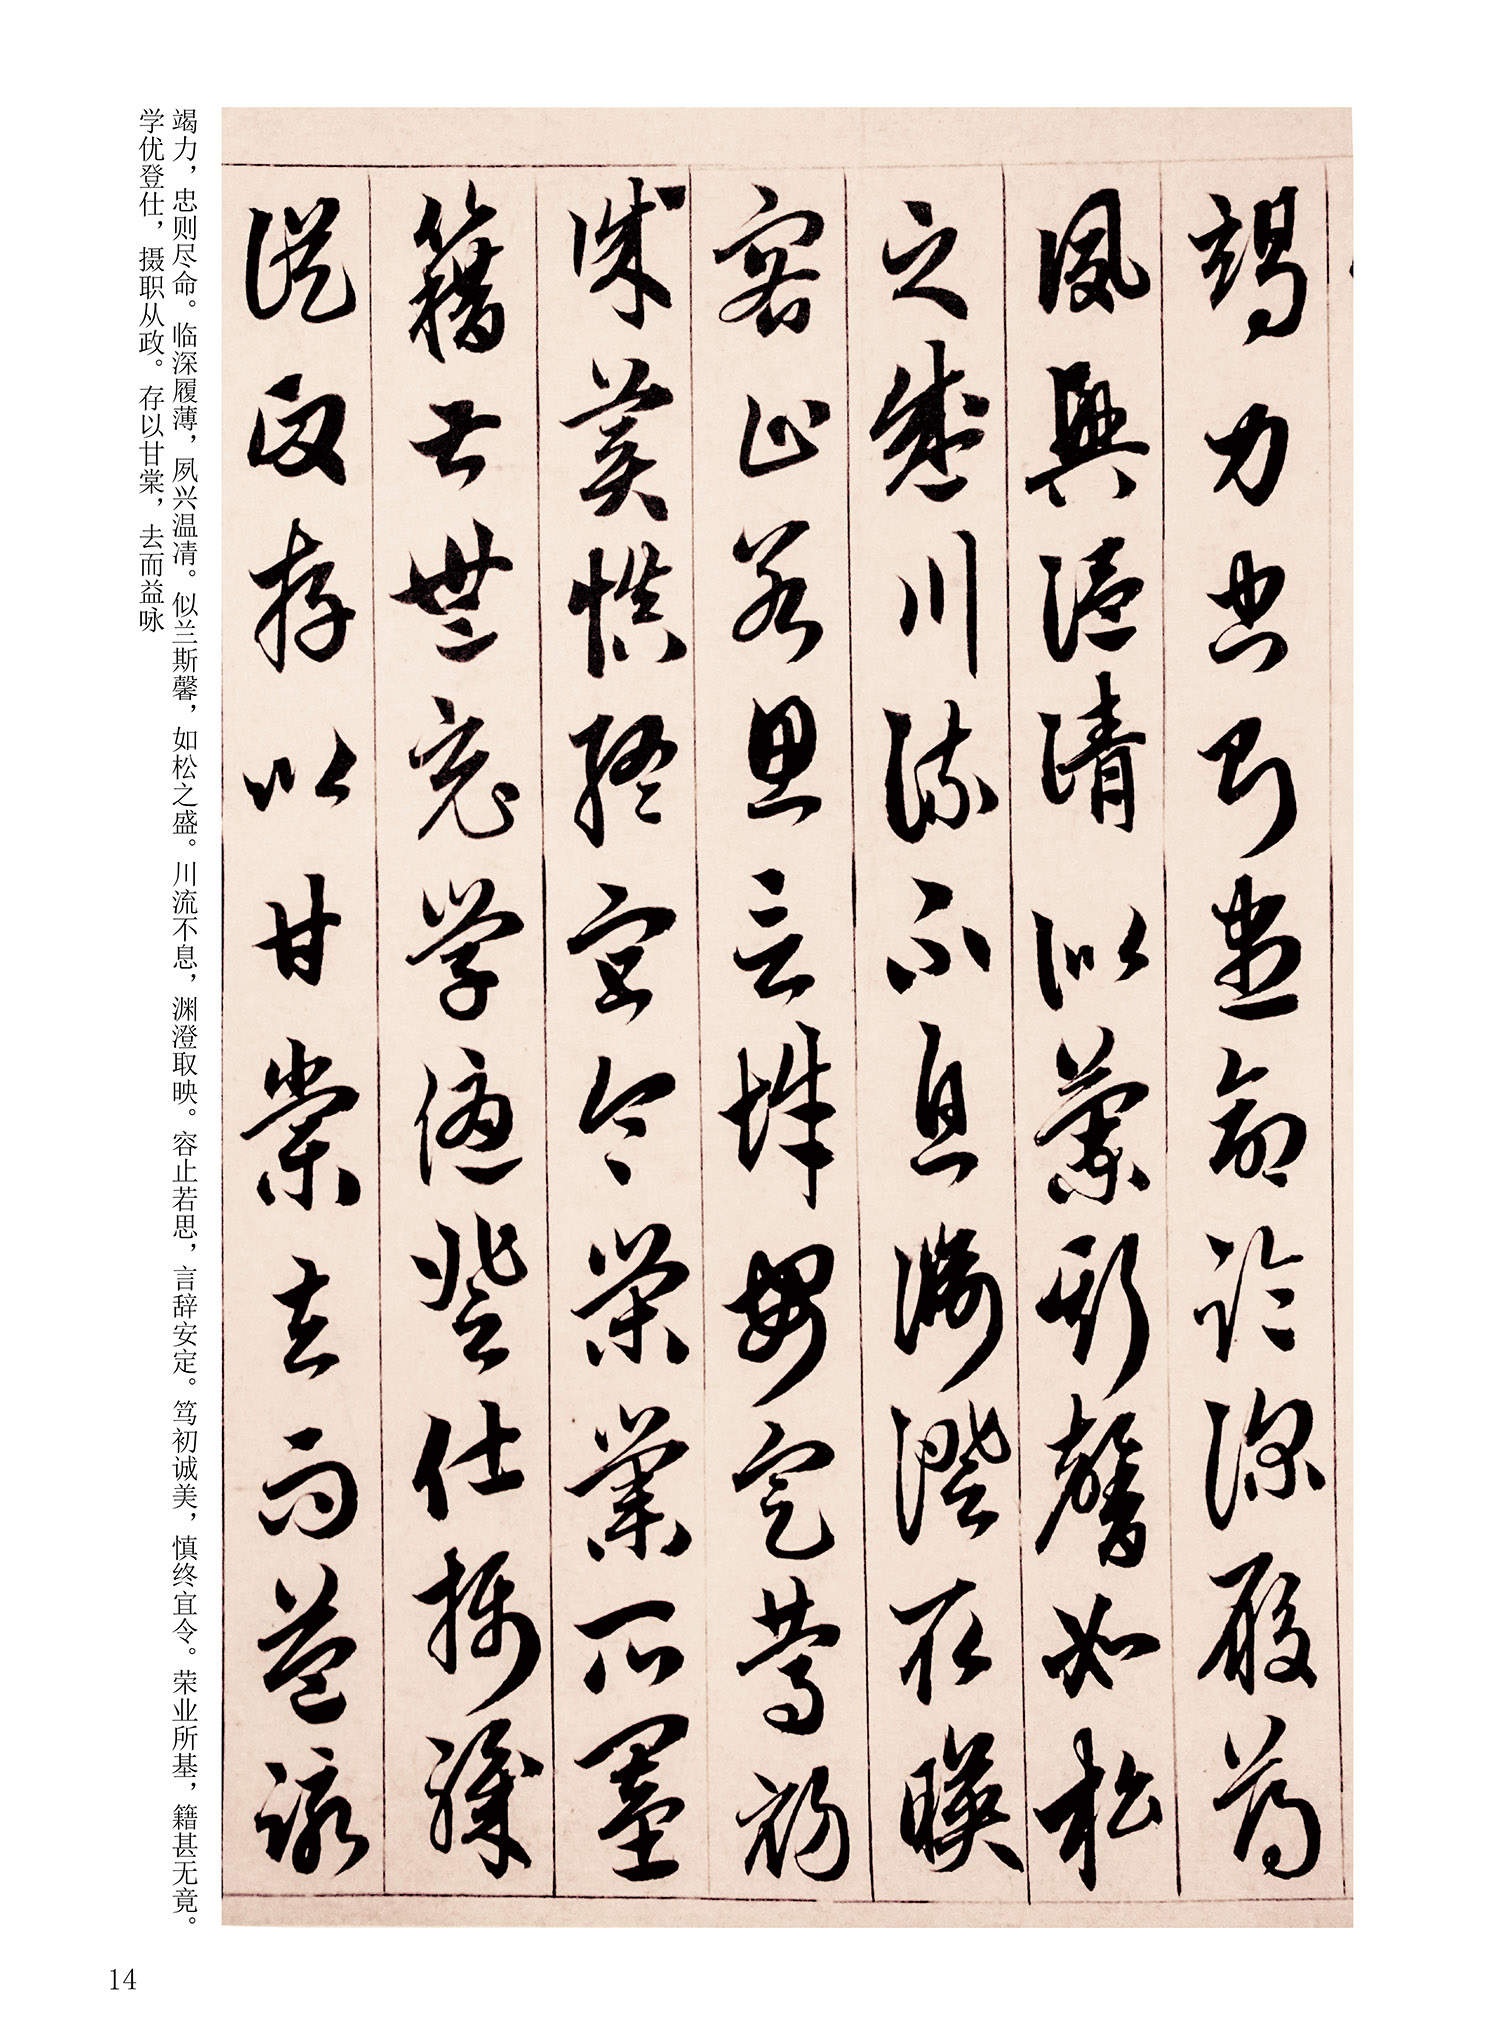 竭力忠則盡命临深履薄
夙興温清似蘭斯馨如松
之盛川流不息淵澄取暎
容止若思言辞安定篤初
誠美慎終宜令榮業所基
籍甚無竟学優登仕攝職
從政存以甘棠去而益詠
竭力，忠则尽命。临深履薄，夙兴温凊。似兰斯馨，如松之盛。川流不息，渊澄取映。容止若思，言辞安定。笃初诚美，慎终宜令。荣业所基，籍甚无竟。
学优登仕，摄职从政。存以甘棠，去而益咏
14